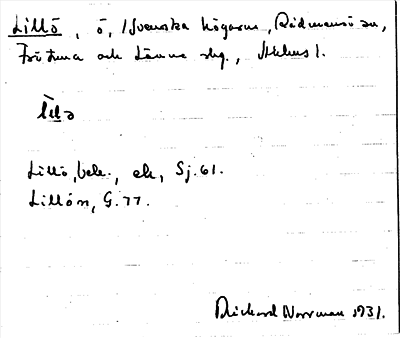 Lillö, ö, i Svenska högarne, Rådmansö sn,
Frötuna och Länna skg., Sthlms l.
Lillö, bek., ek, Sj. 61.
Lillön, G. 77.
Rickard Norrman 1931.